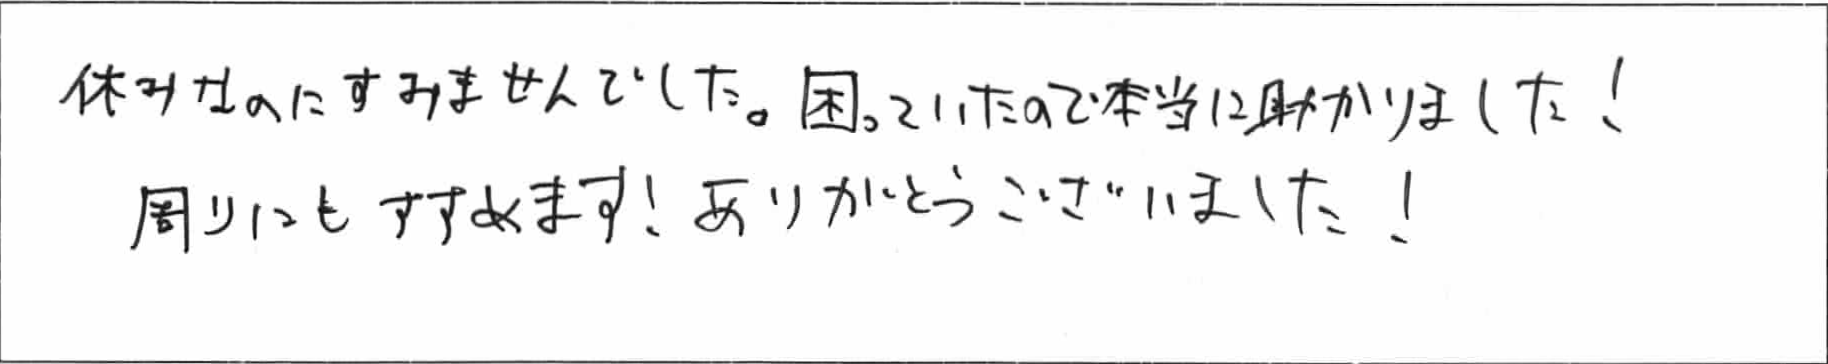 休みなのにすみませんでした。困っていたので本当に助かりました!
周りにもすすめます!ありがとうございました!